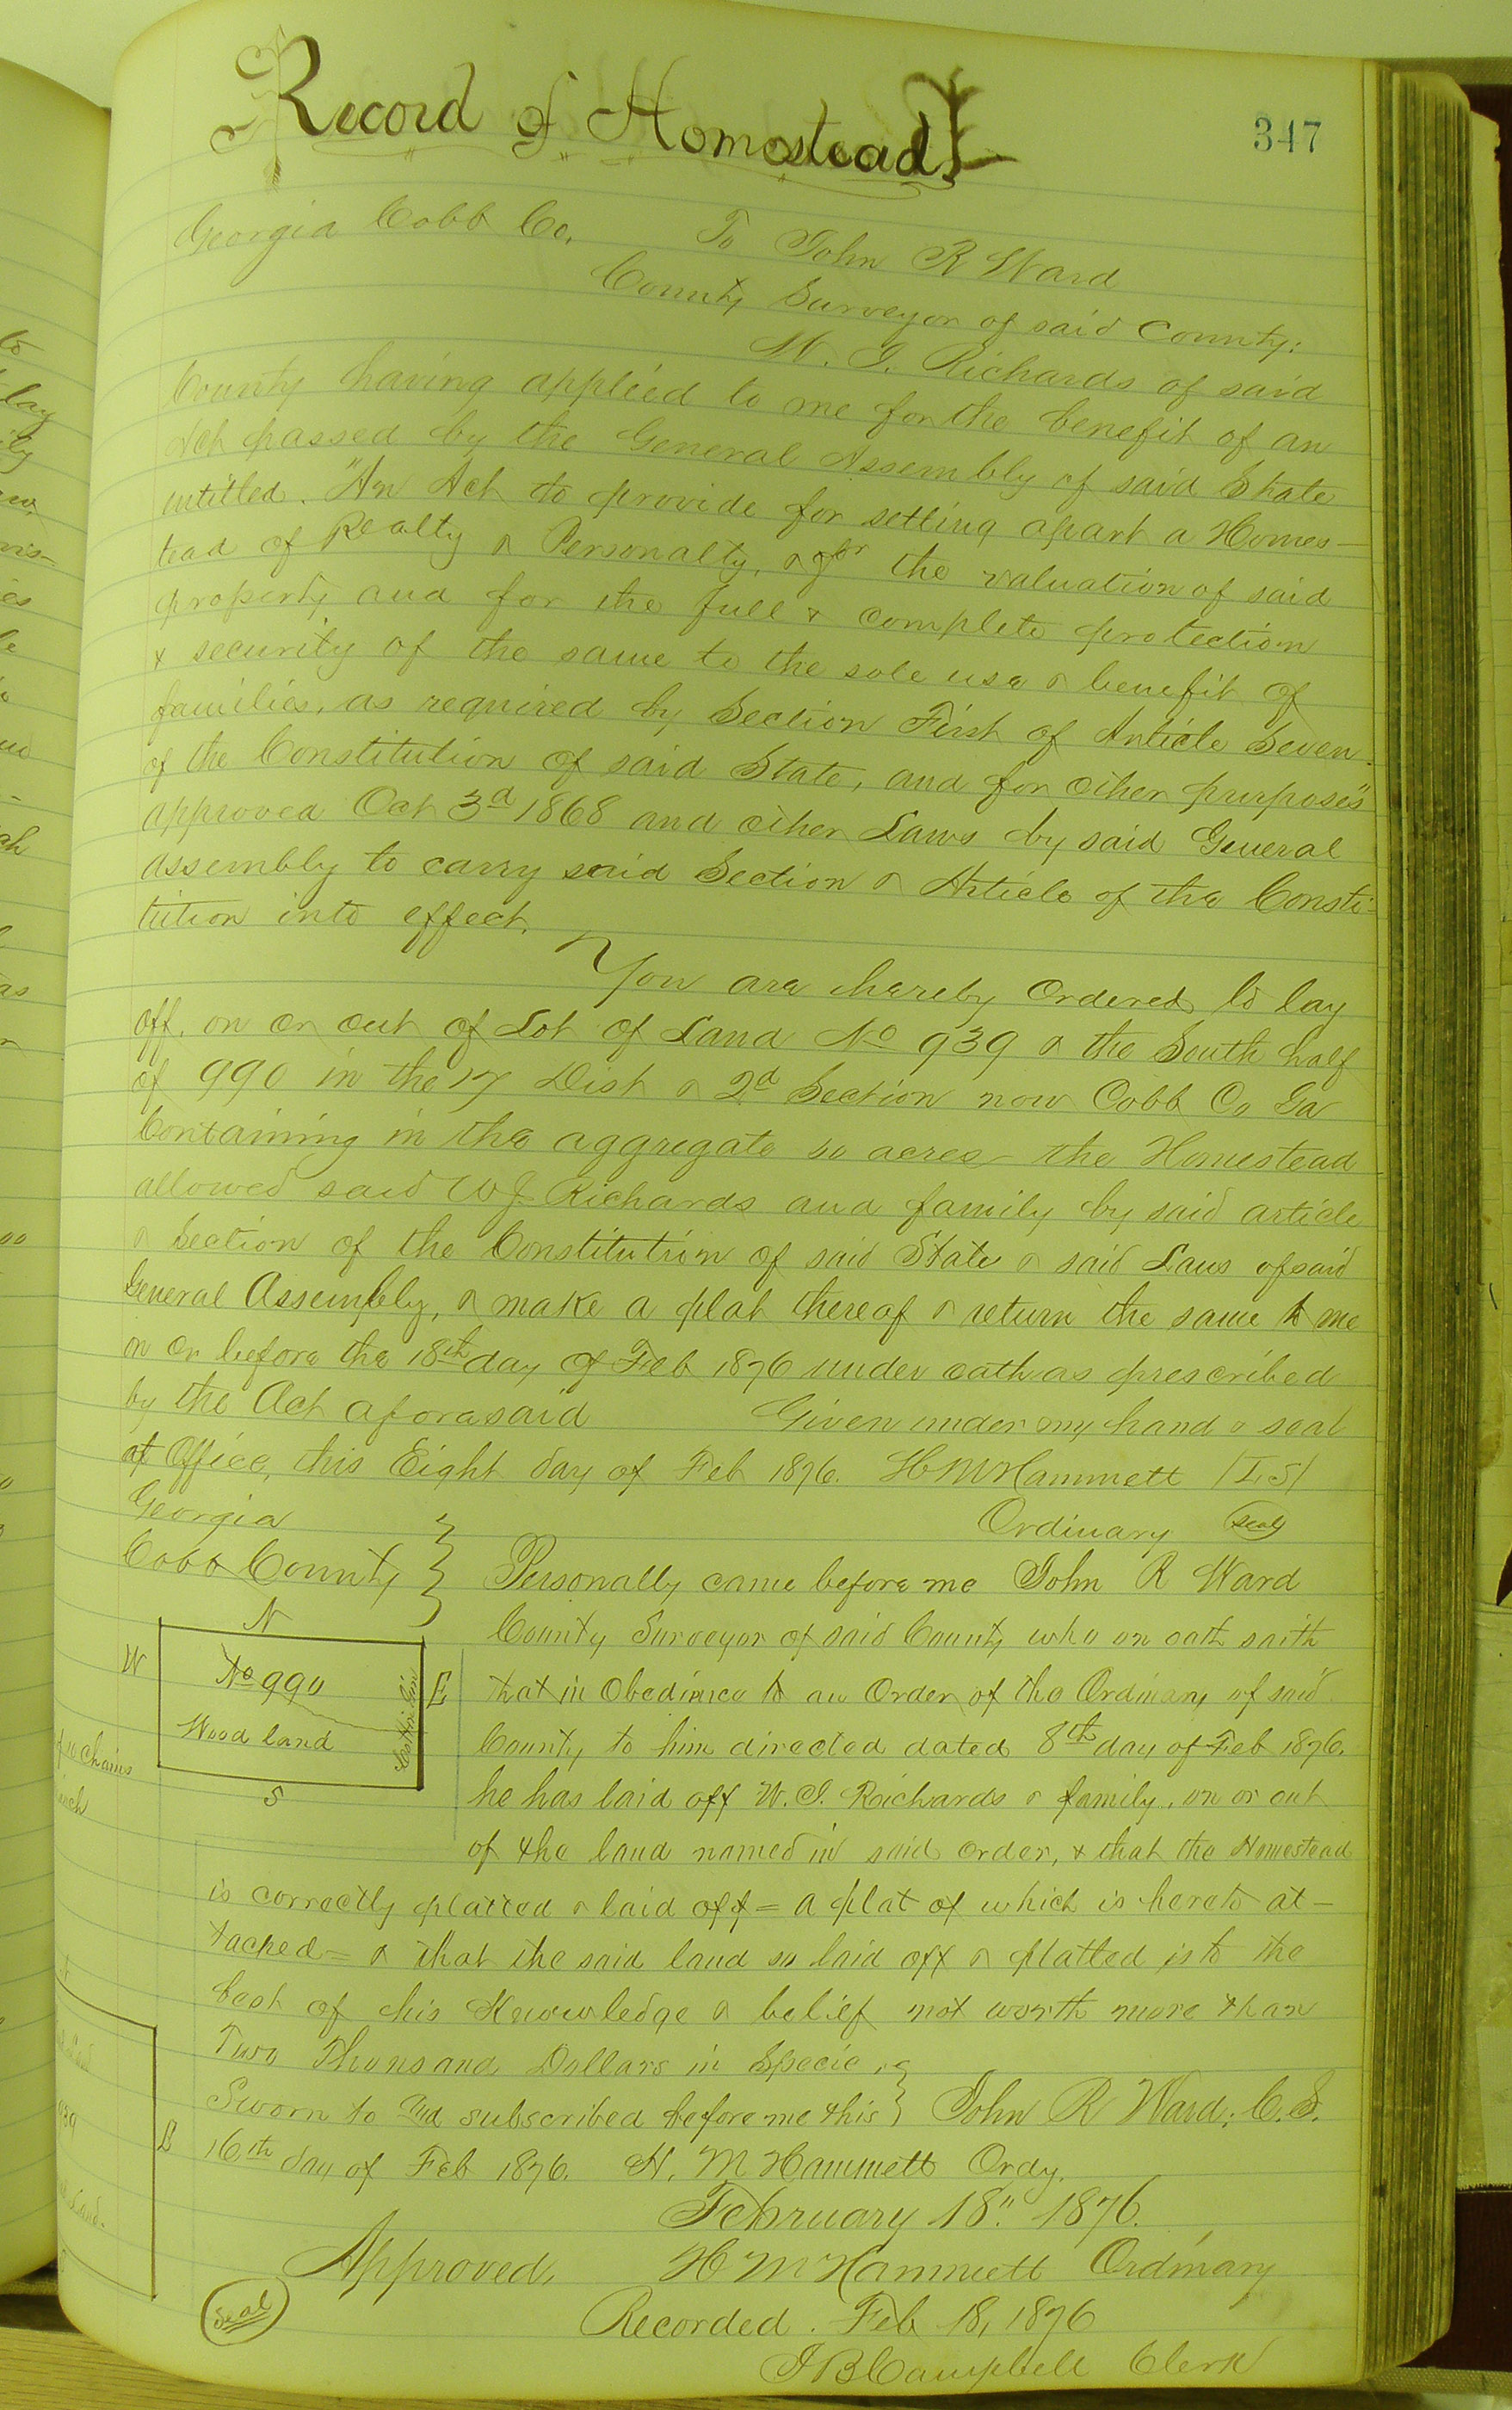 Record of Homestead
347
Georgia Cobb Co. To John R Ward
County Surveyor of said County:
W. J. Richards of said
County having applied to me for the benefit of an
Act passed by the General Assembly of said State
entitled. "An Act to provide for setting apart a Homes-
tead of Realty & Personalty, & for the valuation of said
property and for the full & complete protection
& security of the same to the sole use & benefit of
families, as required by Section First of Article Seven
of the Constitution of said State, and for other purposes"
approved Oct 3d 1868 and other Laws by said General
Assembly to carry said Section & Article of the Consti-
tution into effect.
You are hereby Ordered to lay
off, on or out of Lot of Land No 939 & the South half
of 990 in the 17 Dist & 2d Section now Cobb Co Ga
Containing in the aggregate acres the Homestead
allowed said W J Richards and family by said article
& Section of the Constitution of said State & said Laws of said
General Assembly, & make a plat thereof & return the same to me
on or before the 18th day of Feb 1876 under oath as prescribed
by the Act aforesaid Given under my hand & seal
of Office, this Eight day of Feb 1876. H M Hammett /L S/
Ordinary Seal
Georgia
Cobb County } Personally came before me John R Ward
County Surveyor of said County who on oath saith
that in Obedience to an Order of the Ordinary of said
County to him directed dated 8th day of Feb 1876.
he has laid off W. J. Richards & family, on or out
of the land named in said order, & that the Homestead
N
W
No 990
Wood land
E
S
is correctly platted & laid off = a plat of which is hereto at-
tached = & that the said land so laid off & platted is to the
best of his Knowledge & belief not worth more than
Two Thousand Dollars in Specie.
Sworn to and subscribed before me this } John R Ward. C.S.
16th day of Feb 1876. H. M Hammett Ordy.
February 18" 1876.
Approved, H M Hammett Ordinary
Seal
Recorded. Feb 18, 1876
J B Campbell Clerk